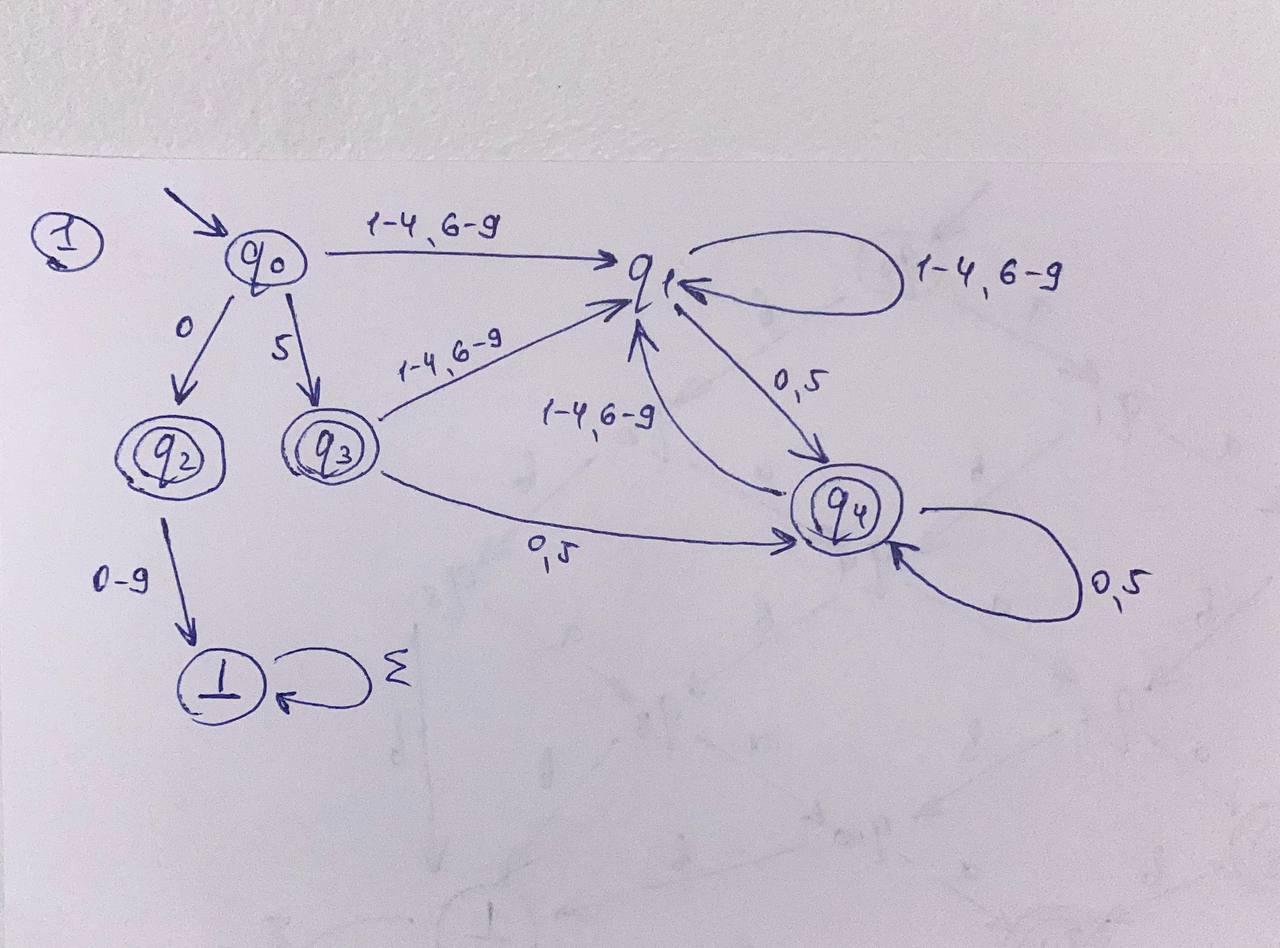 1
q0
1-4, 6-9
q1
1-4, 6-9
0
5
1-4, 6-9
0,5
1-4, 6-9
q2
q3
q4
0,5
0,5
0-9
⊥
Σ